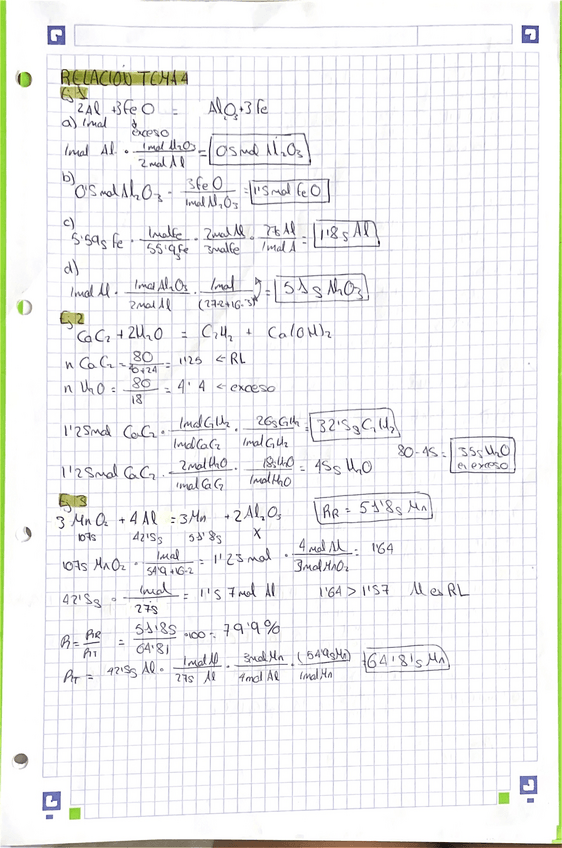 RELACIÓN TEMA 4
Ej 1
2Al + 3FeO = AlO3 + 3Fe
a) 1mol exceso
1mol Al · 1mol Al2O3 / 2mol Al = 0'5 mol Al2O3
b)
0'5 mol Al2O3 · 3FeO / 1mol Al2O3 = 1'5 mol FeO
c)
5'59g Fe · 1molFe / 55'9gFe · 2mol Al / 3molFe · 27 Al / 1mol A = 1'8g Al
d)
1mol Al · 1mol Al2O3 / 2mol Al · 1mol / (27·2+16·3) = 51g Al2O3
Ej 2
CaC2 + 2H2O = C2H2 + Ca(OH)2
n CaC2 = 80 / 40+24 = 1'25 ← RL
n H2O = 80 / 18 = 4'4 ← exceso
1'25mol CaC2 · 1mol C2H2 / 1mol CaC2 · 26g C2H2 / 1mol C2H2 = 32'5g C2H2
80-45 = 35g H2O en exceso
1'25mol CaC2 · 2mol H2O / 1mol CaC2 · 18g H2O / 1mol H2O = 45g H2O
Ej 3
3 MnO2 + 4Al = 3Mn + 2Al2O3
RR = 51'8g Mn
107g 42'5g 51'8g X
107g MnO2 · 1mol / 54'9+16·2 = 1'23 mol · 4mol Al / 3mol MnO2 = 1'64
42'5g · 1mol / 27g = 1'57 mol Al 1'64 > 1'57 Al es RL
R = RR / RT = 51'85 / 64'81 · 100 = 79'9%
RT = 42'5g Al · 1mol Al / 27g Al · 3mol Mn / 4mol Al · (54'9g Mn) / 1mol Mn = 64'81g Mn